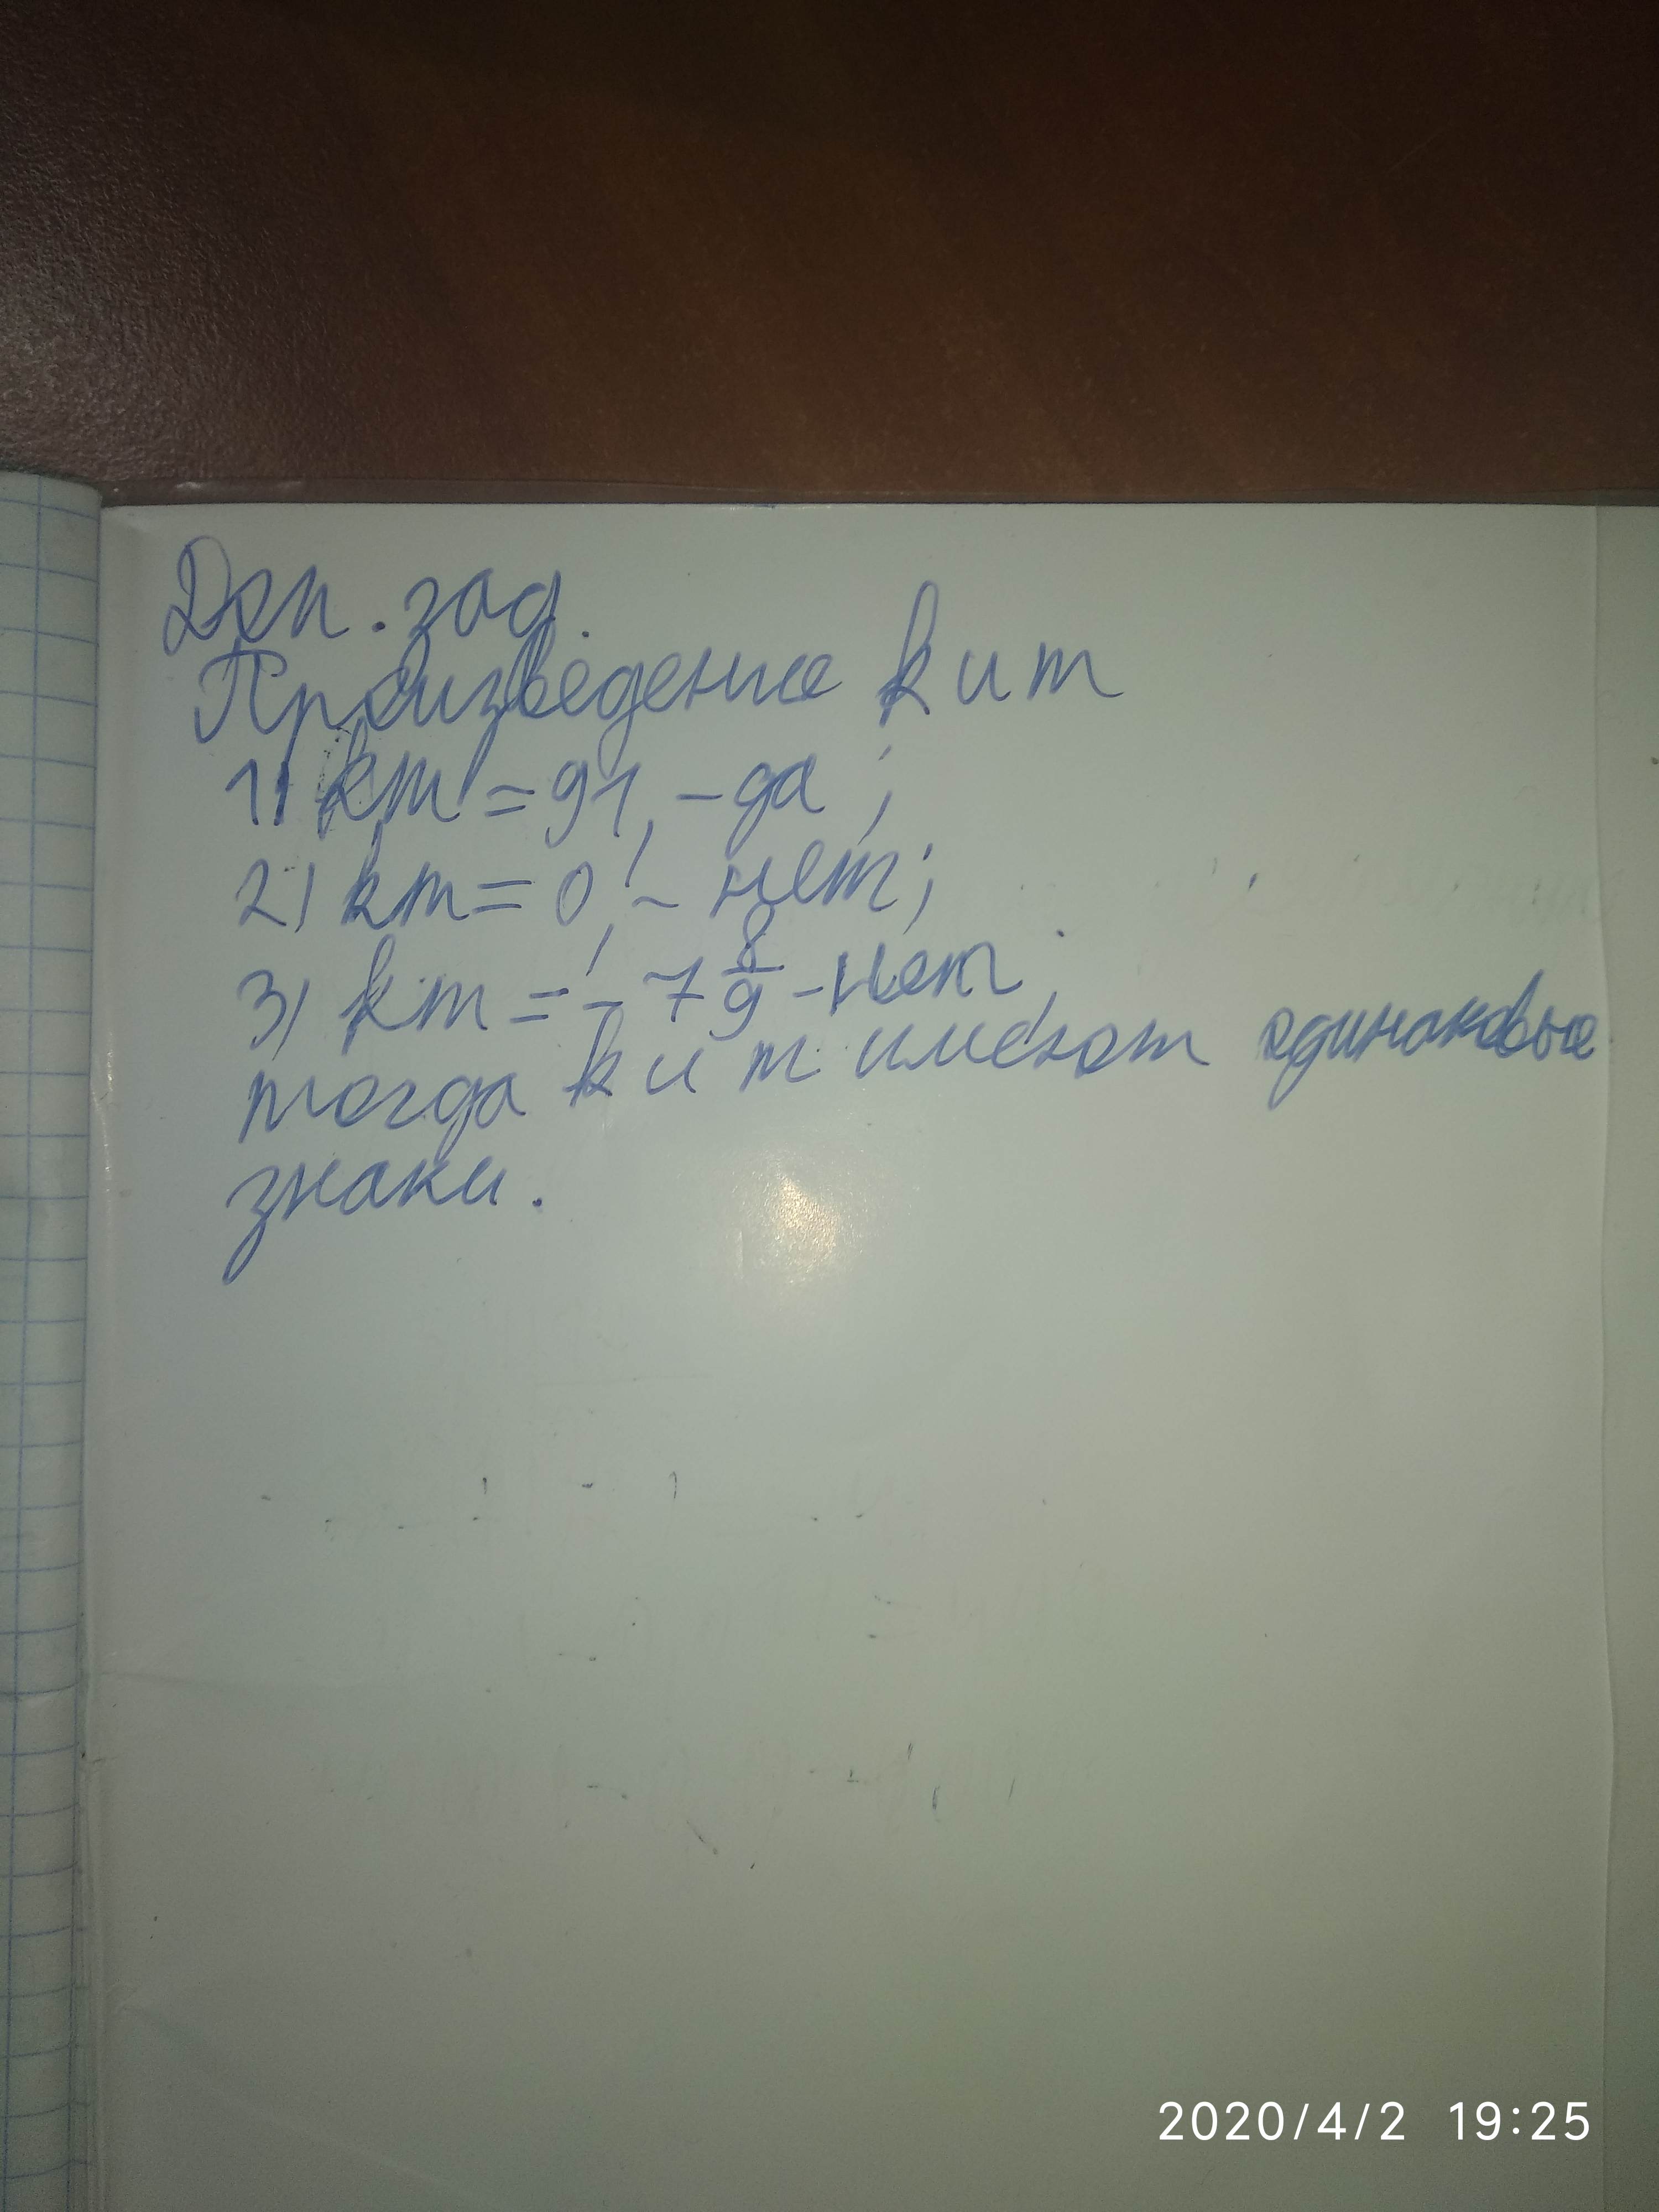 Доп. зад.
Произведение k и m
1) km = 91, - да;
2) km = 0, - нет;
3) km = - 7 8/9 - нет,
тогда k и m имеют одинаковые
знаки.
2020/4/2 19:25